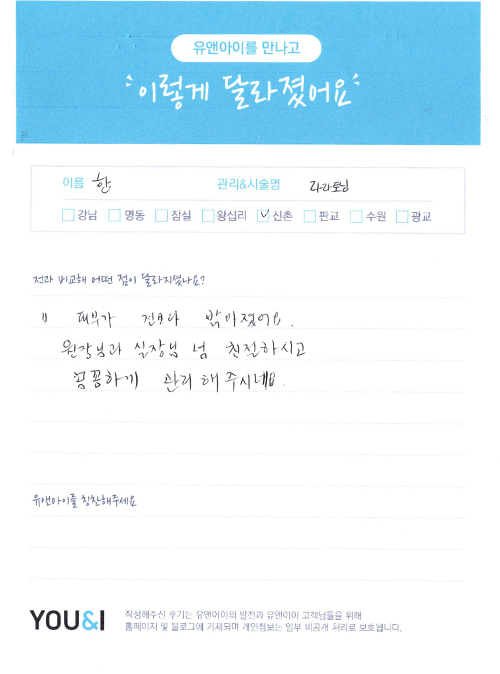 유앤아이를 만나고
이렇게 달라졌어요
이름 한 관리&시술명
강남 명동 잠실 왕십리 신촌 판교 수원 광교
전과 비교해 어떤 점이 달라지셨나요?
피부가 전보다 밝아졌어요.
원장님과 실장님 넘 친절하시고
꼼꼼하게 관리 해 주시네요.
유앤아이를 칭찬해주세요
YOU&I
작성해주신 후기는 유앤아이의 발전과 유앤아이 고객님들을 위해
홈페이지 및 블로그에 기재되며 개인정보는 일부 비공개 처리로 보호됩니다.